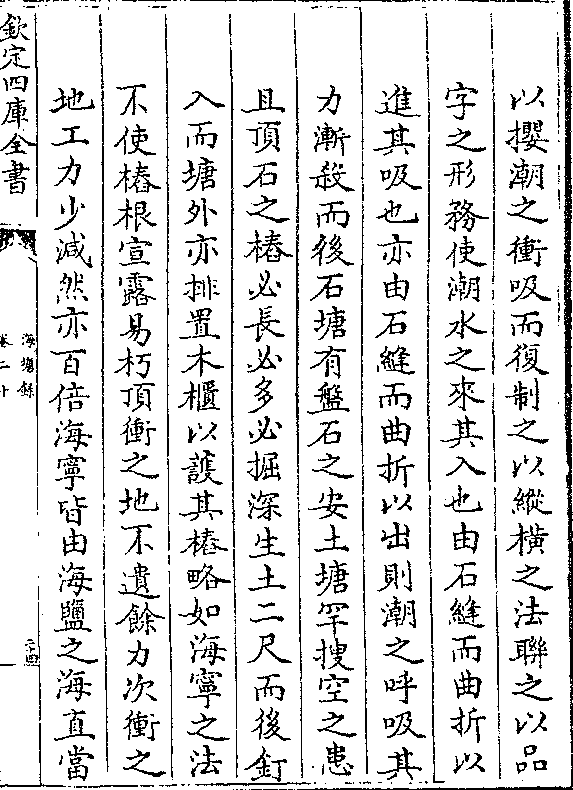 以攖潮之衝吸而復制之以縱橫之法聯之以品
字之形務使潮水之來其入也由石縫而曲折以
進其吸也亦由石縫而曲折以出則潮之呼吸其
力漸殺而後石塘有盤石之安土塘罕搜空之患
且頂石之樁必長必多必掘深生土二尺而後釘
入而塘外亦排置木櫃以護其樁略如海寧之法
不使樁根宣露易朽頂衝之地不遺餘力次衝之
地工力少減然亦百倍海寧皆由海鹽之海直當
欽定四庫全書
海塘錄
卷二十
二十四